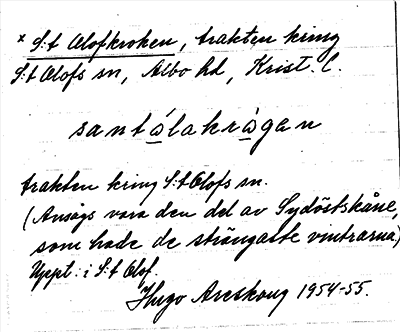 × S:t Olofkroken, trakten kring
S:t Olofs sn, Albo hd, Krist. l.
santålakrågen
trakten kring S:t Olofs sn.
(Ansågs vara den del av Sydöstskåne,
som hade de strängaste vintrarna)
Uppt. i S:t Olof.
Hugo Areskoug 1954-55.